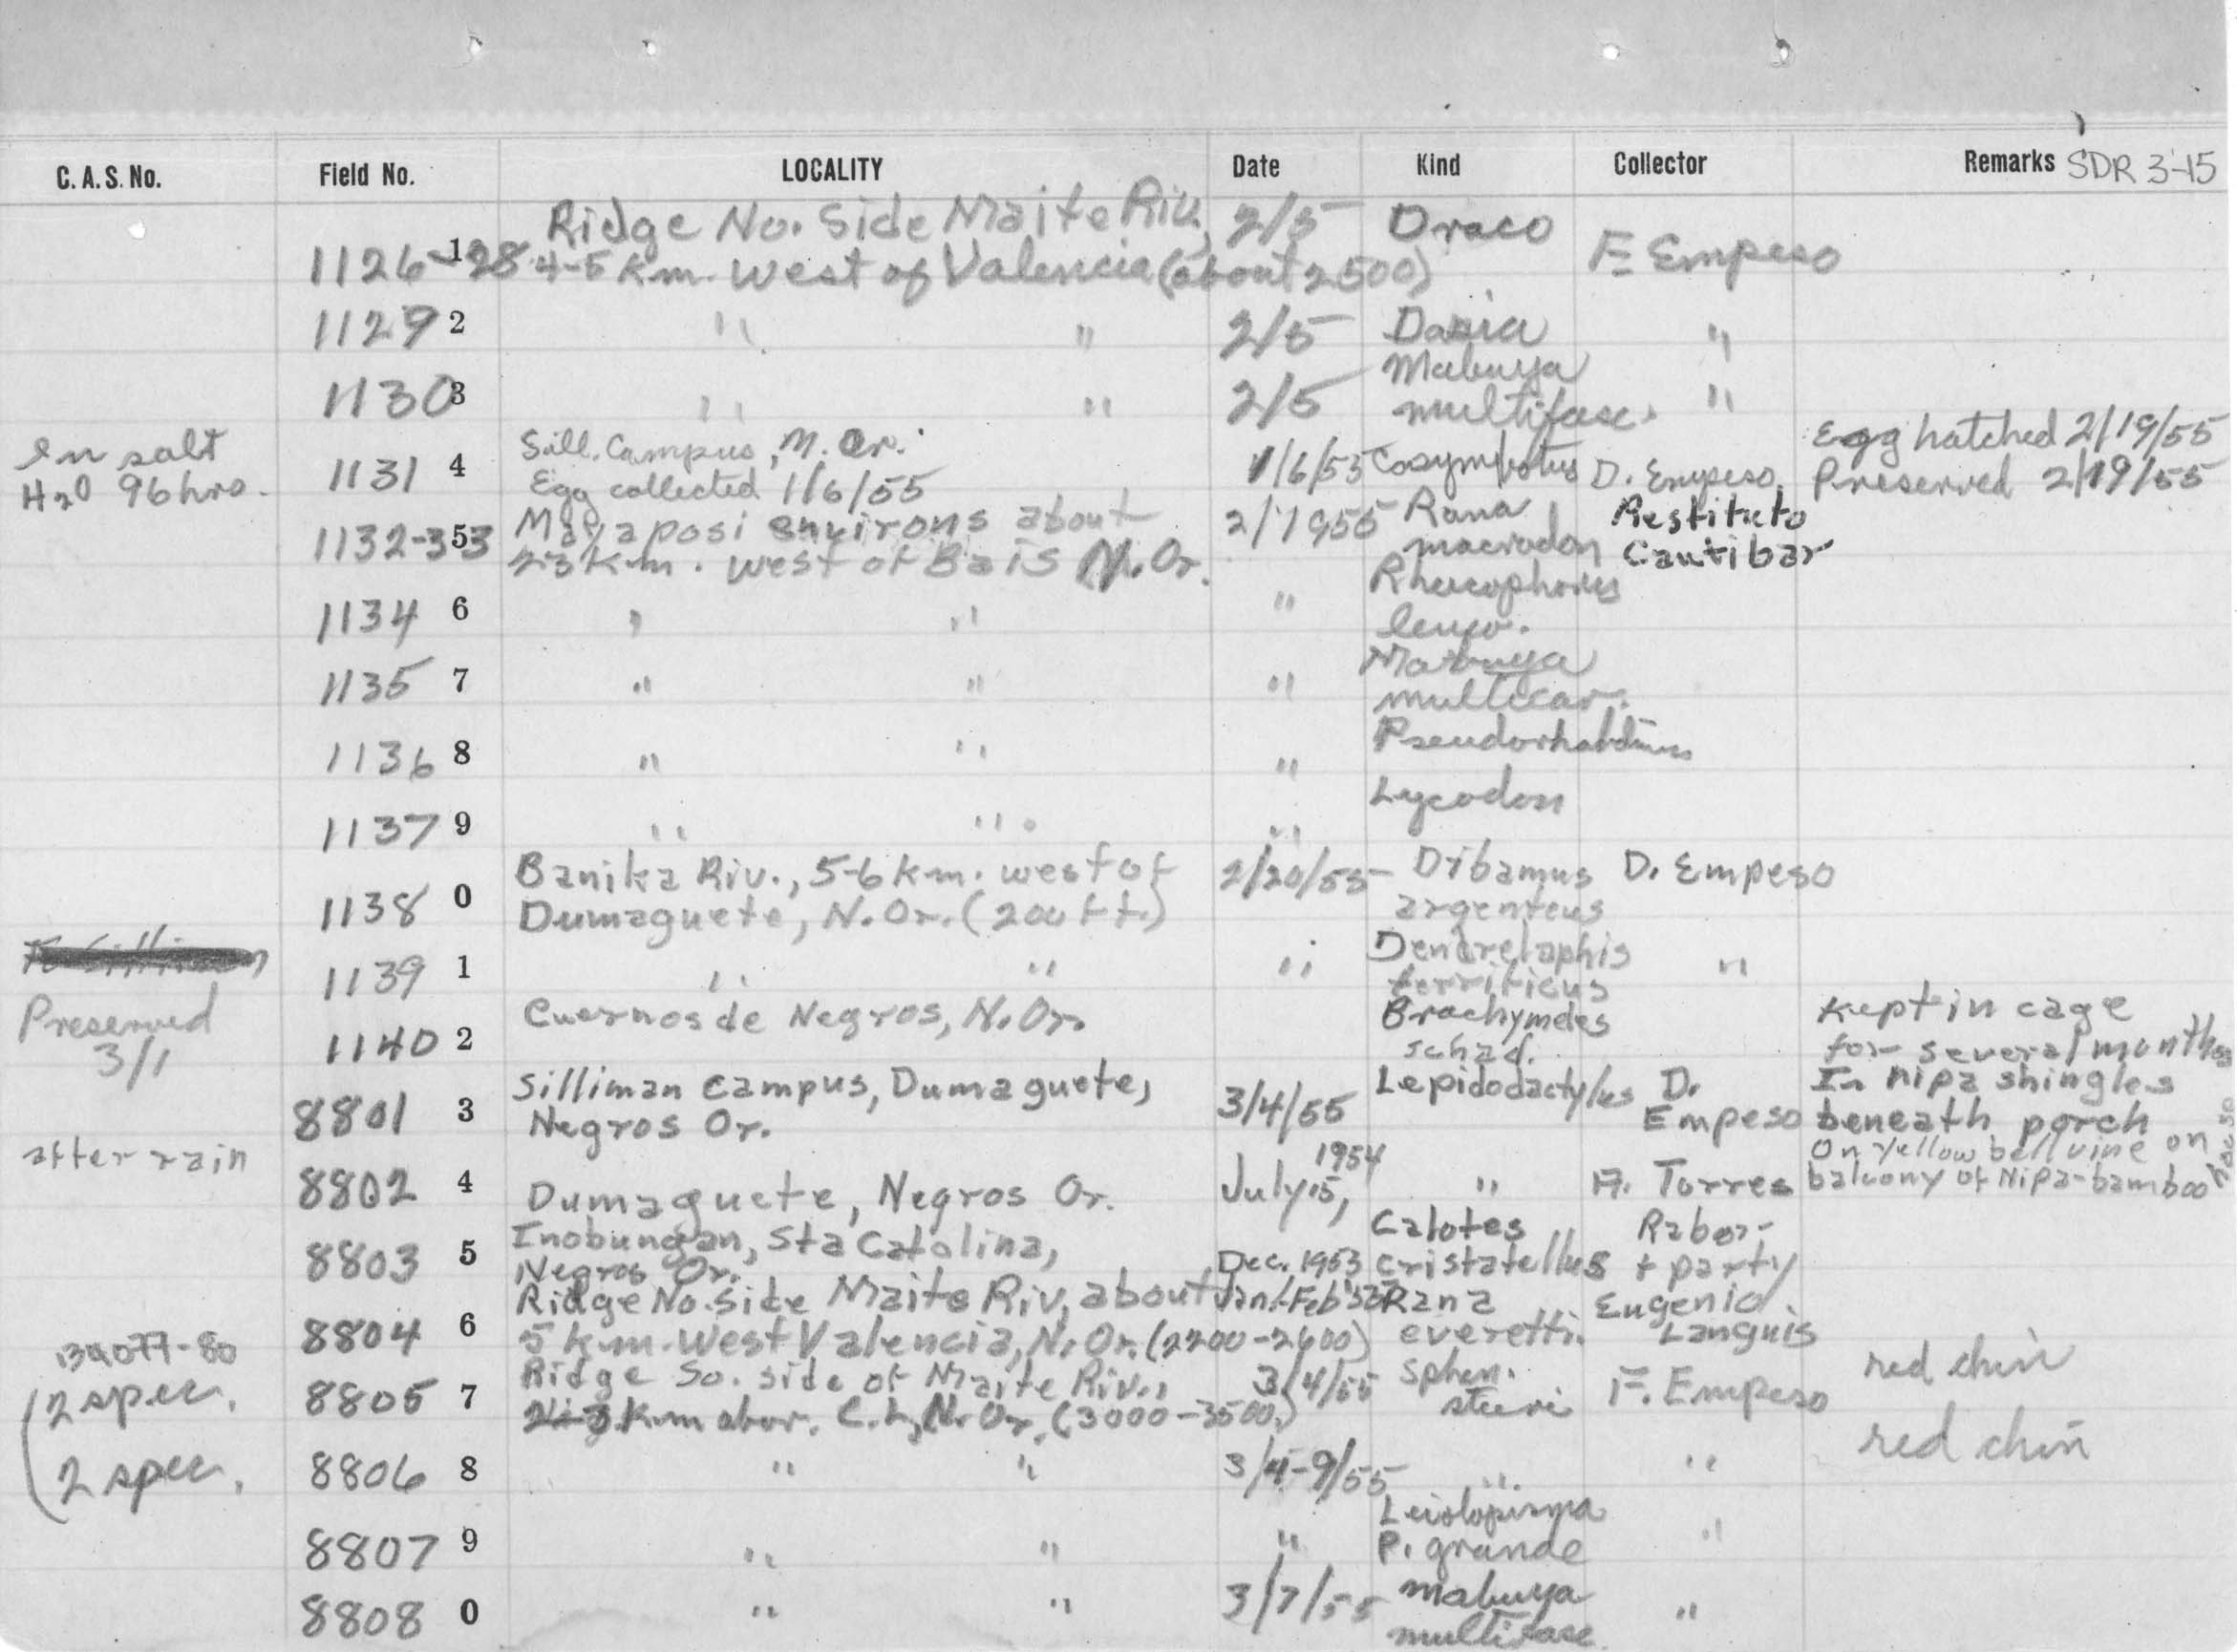 C.A.S. No. Field No. LOCALITY Date Kind Collector Remarks SDR 3-15
Ridge No. Side Maite Riv., 2/5 Draco F. Empeso
1126-128 4-5 km. West of Valencia (about 2500)
1129 2 " " 2/5 Dasia "
1130 3 " " 2/5 Mabuya
multifasc. "
In salt
H2O 96 hrs.
1131 4 Sill. Campus, N. Or.
Egg collected 1/6/55
1/6/55 Cosymbotus D. Empeso
Egg hatched 2/19/55
Preserved 2/19/55
1132-33 5 environs about
23 km. west of Bais N. Or.
2/1955 Rana
macrodon
Restituto
Cantibar
1134 6 " " " Rhacophorus
leuco.
1135 7 " " " Mabuya
multicar.
1136 8 " " " Pseudorhabdium
1137 9 " " " Lycodon
1138 0 Banika Riv., 5-6 km. west of
Dumaguete, N. Or. (200 ft.)
2/20/55 Dibamus
argenteus
D. Empeso
1139 1 " " " Dendrelaphis
terrificus
"
Preserved
3/1
1140 2 Cuernos de Negros, N. Or.
Brachymeles
schad.
Kept in cage
for several months
8801 3 Silliman Campus, Dumaguete,
Negros Or.
3/4/55 Lepidodactylus D.
Empeso
In nipa shingles
beneath porch
after rain
8802 4 Dumaguete, Negros Or.
July 15, 1954 " A. Torres
On yellow bell vine on
balcony of Nipa-bamboo house
8803 5 Inobungan, Sta Catalina,
Negros Or.
Dec. 1953 Calotes
cristatellus
Rabor
+ party
8804 6 Ridge No. side Maite Riv, about
5 km. West Valencia, N. Or. (2200-2600)
Jan.-Feb Rana
everetti.
Eugenio
Languis
-80
2 spec.
8805 7 Ridge So. side of Maite Riv.,
km abov. C.L., N. Or. (3000-3500.)
3/4/55 Sphen.
steeri
F. Empeso
red chin
2 spec.
8806 8 " " 3/4-9/55 " " red chin
8807 9 " " " Leiolopisma
P. grande
"
8808 0 " " 3/7/55 Mabuya
multifasc.
"